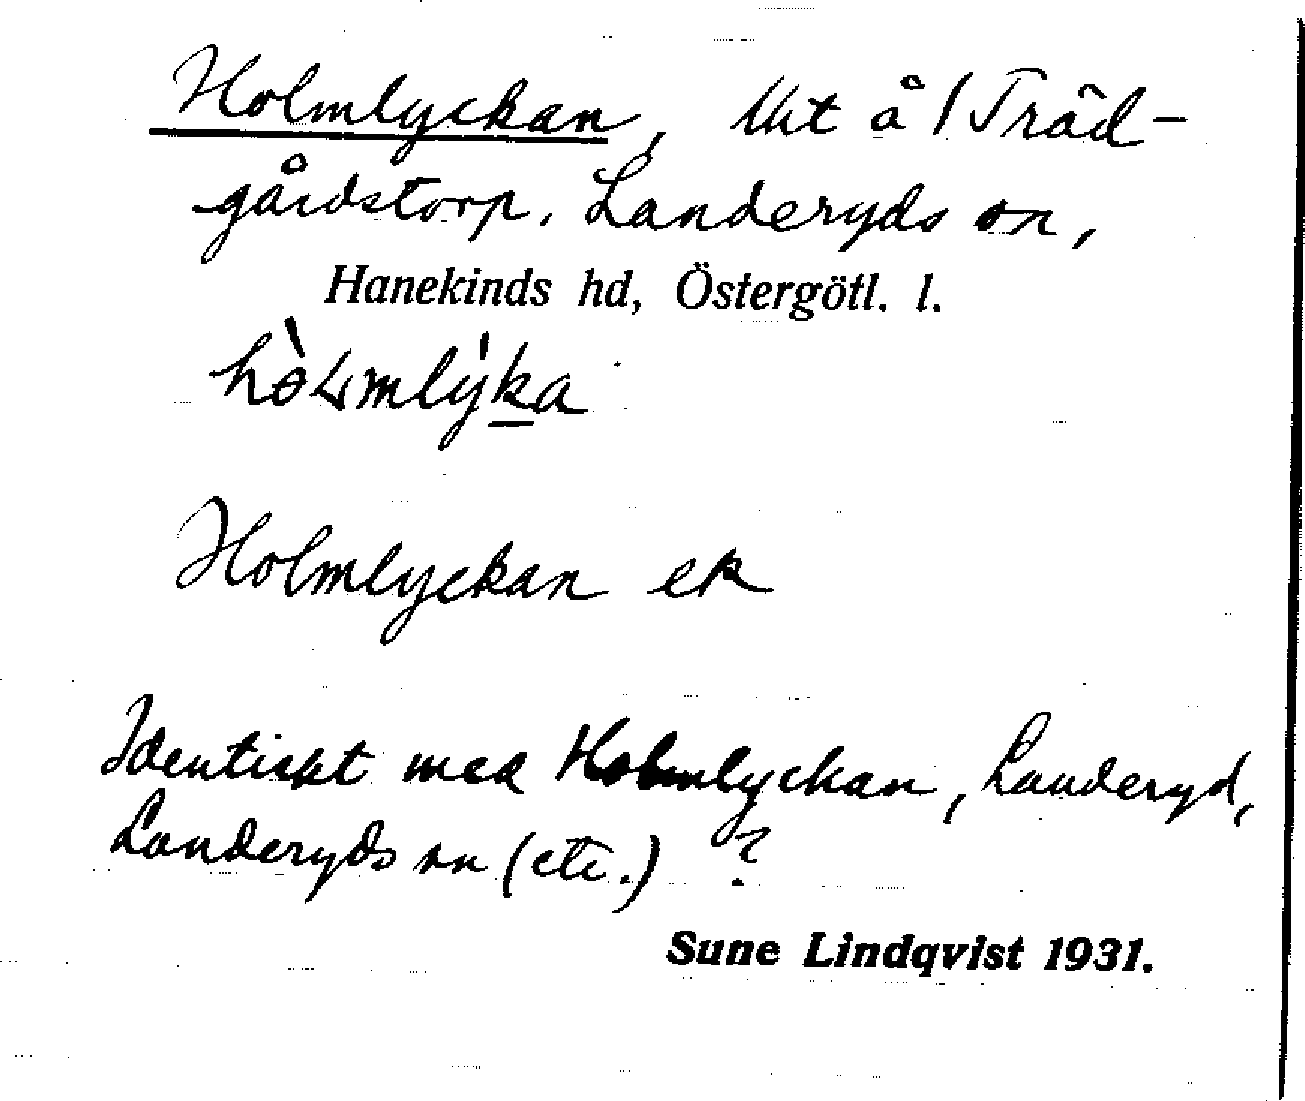 Holmlyckan, lht å 1 Träd-
gårdstorp, Landeryds sn,
Hanekinds hd, Östergötl. l.
Holmlyckan ek
Identiskt med Holmlyckan, Landeryd,
Landeryds sn (etc.) ?
Sune Lindqvist 1931.